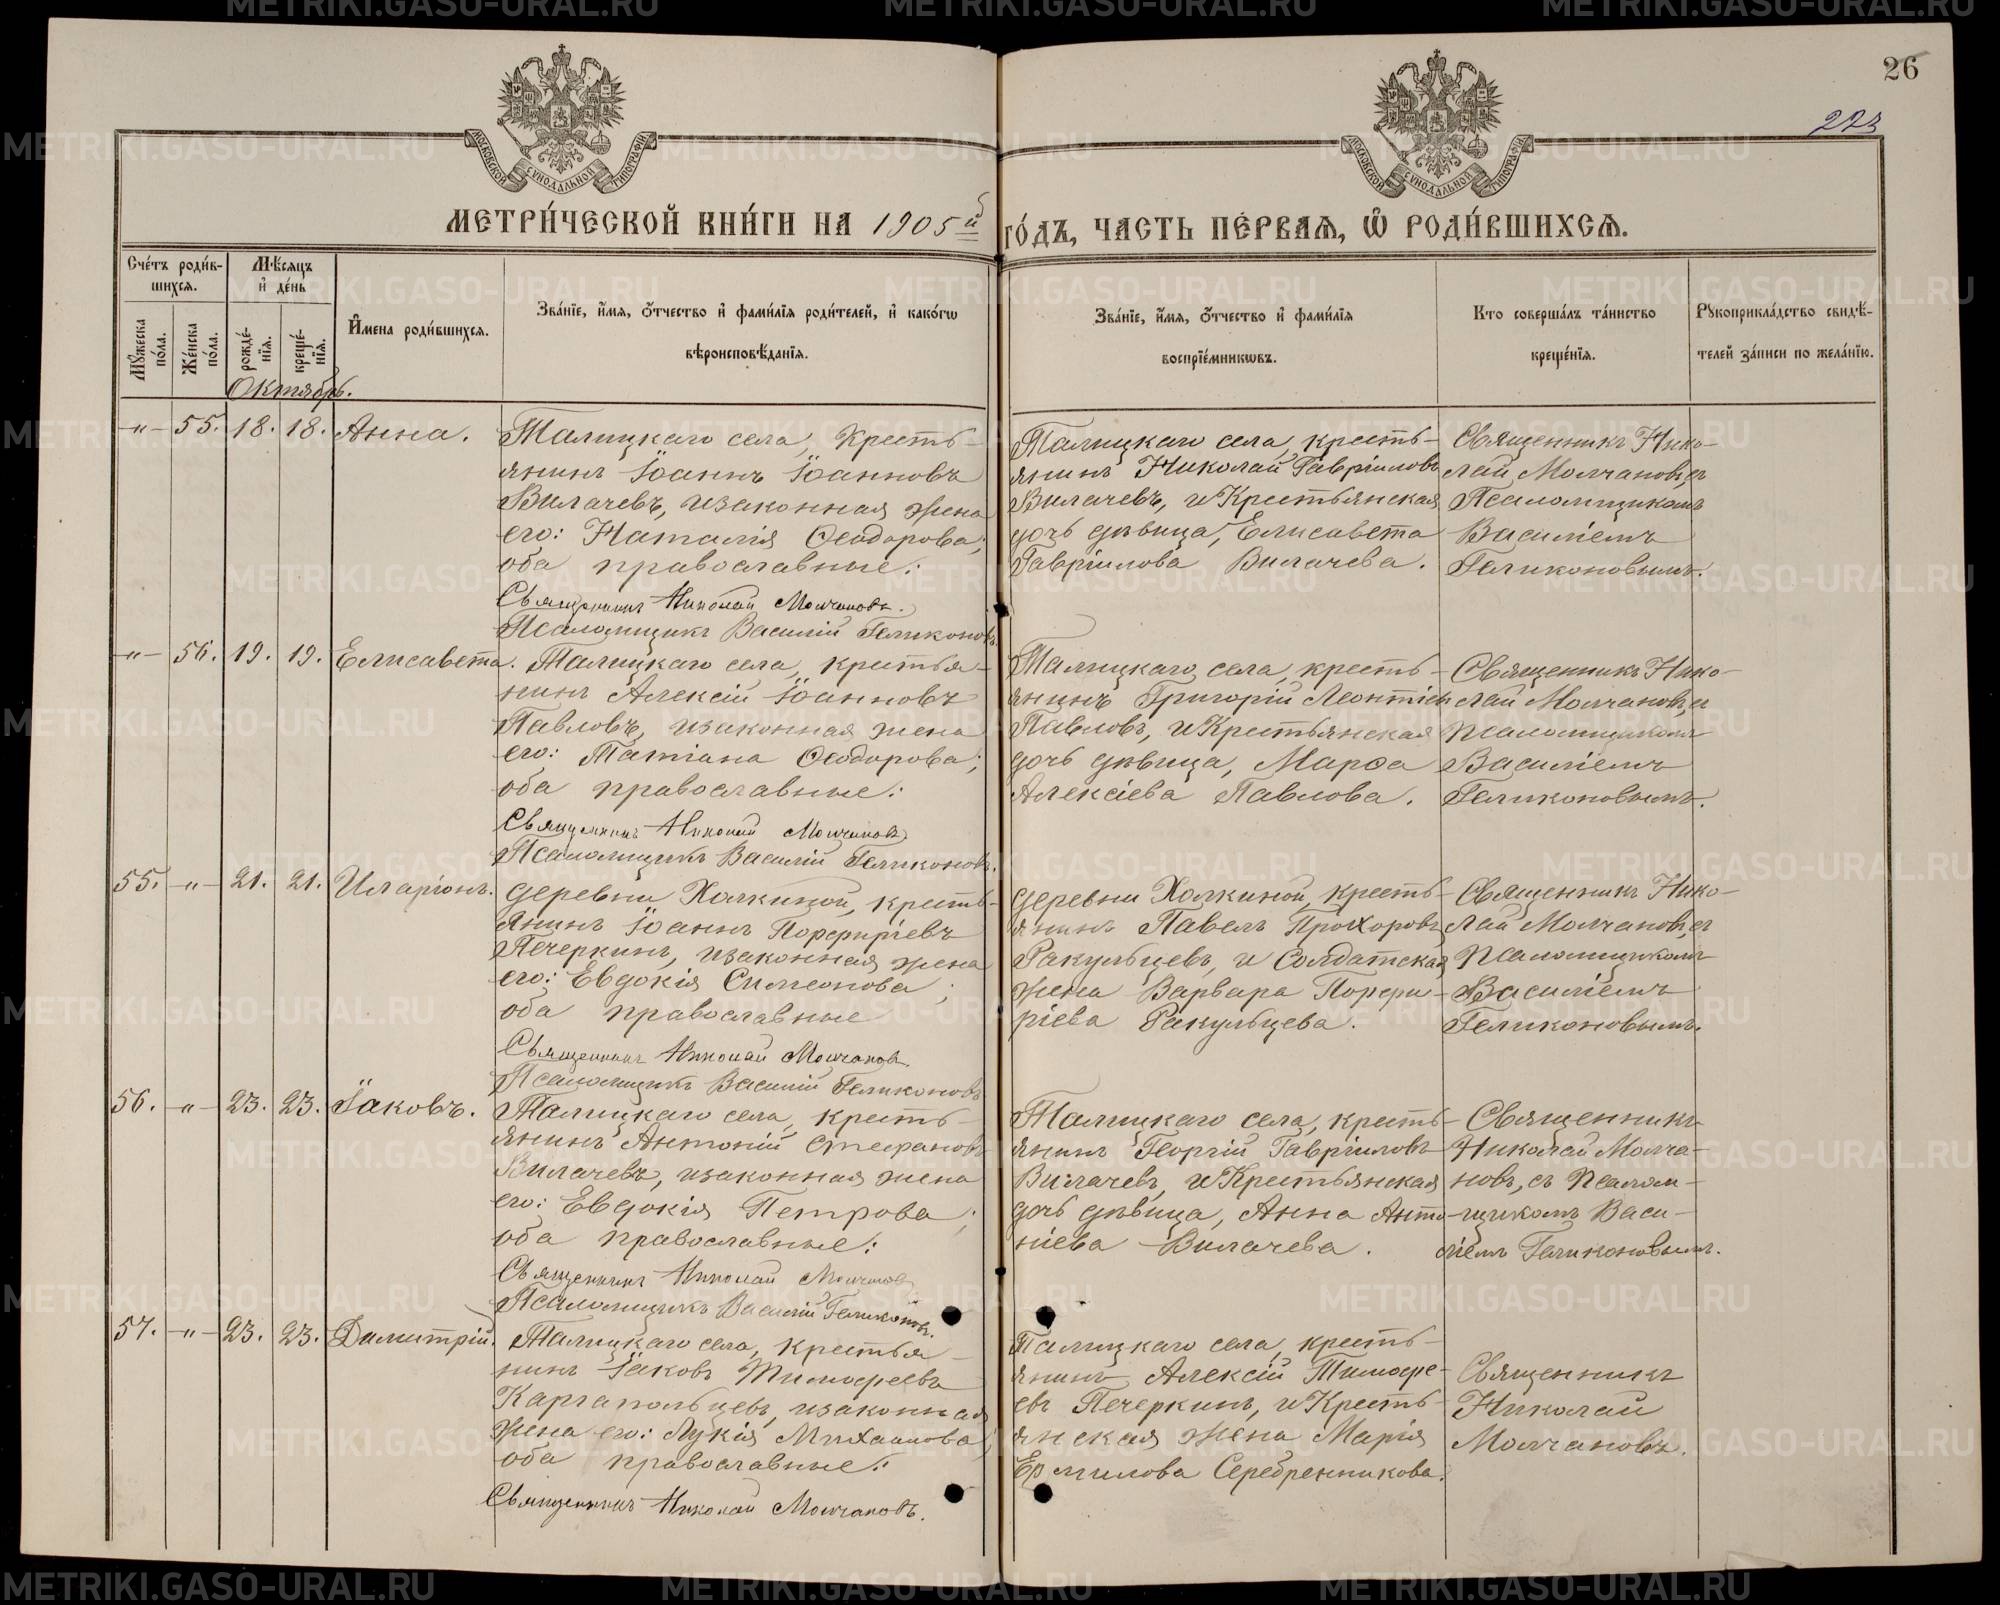 26
223
МОСКОВСКОЙ СУНОДАЛЬНОЙ ТИПОГРАФІИ
МОСКОВСКОЙ СУНОДАЛЬНОЙ ТИПОГРАФІИ
МЕТРИ́ЧЕСКОЙ КНИ́ГИ НА 1905й
ГО́ДЪ, ЧАСТЬ ПЕ́РВАЯ, Ѡ РОДИ́ВШИХСЯ.
Сче́тъ роди́в-
шихся.
Мѣ́сяцъ
и де́нь
Мꙋ́жеска
по́ла.
Же́нска
по́ла.
рожде́-
нїя.
креще́-
нїя.
И́мена роди́вшихся.
Зва́нїе, и́мя, ѻ҆́тчество и фами́лїя роди́телей, и како́гѡ
вѣроисповѣ́данїя.
Зва́нїе, и́мя, ѻ҆́тчество и фами́лїя
воспрїе́мникѡвъ.
Кто соверша́лъ та́инство
креще́нїя.
Рꙋкоприкла́дство свидѣ́-
телей за́писи по жела́нїю.
Октябрь.
-"- 55. 18. 18. Анна.
Талицкаго села, Кресть-
янинъ Іоаннъ Іоанновъ
Вилачевъ, и законная жена
его: Наталія Ѳеодорова;
оба православные:
Священникъ Николай Молчановъ.
Псаломщикъ Василій Геликоновъ.
Талицкаго села, кресть-
янинъ Николай Гавріиловъ
Вилачевъ, и Крестьянская
дочь дѣвица, Елисавета
Гавріилова Вилачева.
Священникъ Нико-
лай Молчановъ, съ
Псаломщикомъ
Василіемъ
Геликоновымъ.
-"- 56. 19. 19. Елисавета.
Талицкаго села, крестья-
нинъ Алексій Іоанновъ
Павловъ, и законная жена
его: Татіана Ѳеодорова;
оба православные:
Священникъ Николай Молчановъ
Псаломщикъ Василій Геликоновъ.
Талицкаго села, кресть-
янинъ Григорій Леонтіевъ
Павловъ, и Крестьянская
дочь дѣвица, Марѳа
Алексіева Павлова.
Священникъ Нико-
лай Молчановъ, съ
Псаломщикомъ
Василіемъ
Геликоновымъ.
55. -"- 21. 21. Иларіонъ.
деревни Халкиной, кресть-
янинъ Іоаннъ Порфиріевъ
Печеркинъ, и законная жена
его: Евдокія Симеонова;
оба православные
Священникъ Николай Молчановъ
Псаломщикъ Василій Геликоновъ
деревни Халкиной, кресть-
янинъ Павелъ Прохоровъ
Ракульцевъ, и Солдатская
жена Варвара Порфи-
ріева Ракульцева.
Священникъ Нико-
лай Молчановъ, съ
Псаломщикомъ
Василіемъ
Геликоновымъ.
56. -"- 23. 23. Іаковъ.
Талицкаго села, кресть-
янинъ Антоній Стефановъ
Вилачевъ, и законная жена
его: Евдокія Петрова;
оба православные:
Священникъ Николай Молчановъ
Псаломщикъ Василій Геликоновъ.
Талицкаго села, кресть-
янинъ Георгій Гавріиловъ
Вилачевъ, и Крестьянская
дочь дѣвица, Анна Анто-
ніева Вилачева.
Священникъ
Николай Молча-
новъ, съ Псалом-
щикомъ Васи-
ліемъ Геликоновымъ.
57. -"- 23. 23. Димитрій.
Талицкаго села, крестья-
нинъ Іаковъ Тимофеевъ
Каргапольцевъ, и законная
жена его: Лукія Михаилова;
оба православные:
Священникъ Николай Молчановъ.
Талицкаго села, кресть-
янинъ Алексій Тимофе-
евъ Печеркинъ, и Кресть-
янская жена Марія
Ермилова Серебренникова.
Священникъ
Николай
Молчановъ.